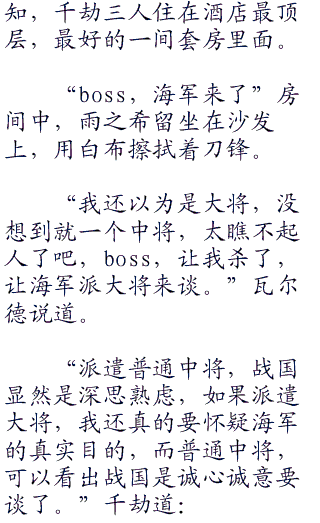 知，千劫三人住在酒店最顶
层，最好的一间套房里面。
“boss，海军来了”房
间中，雨之希留坐在沙发
上，用白布擦拭着刀锋。
“我还以为是大将，没
想到就一个中将，太瞧不起
人了吧，boss，让我杀了，
让海军派大将来谈。”瓦尔
德说道。
“派遣普通中将，战国
显然是深思熟虑，如果派遣
大将，我还真的要怀疑海军
的真实目的，而普通中将，
可以看出战国是诚心诚意要
谈了。”千劫道：